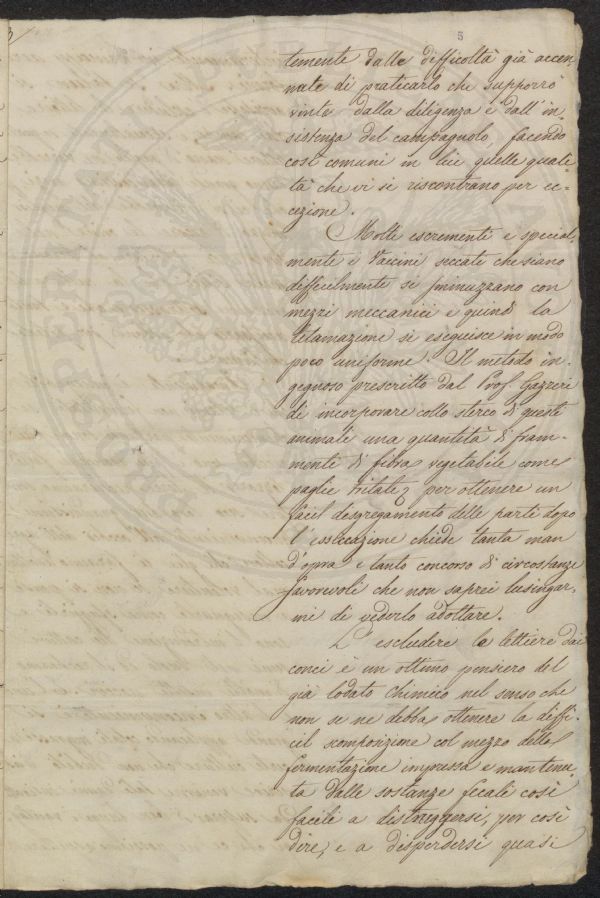 5
temente dalle difficoltà già accen
nate di praticarlo che supporrò
vinte dalla diligenza e dall'in=
sistenza del campagnolo, facendo
così comuni in lui quelle quali
tà che vi si riscontrano per ec=
cezione.
Molti escrementi e special,
mente i Vaccini seccati che siano
difficilmente si sminuzzano con
mezzi meccanici e quindi la
letamazione si eseguisce in modo
poco uniforme. Il metodo in,
gegnoso prescritto dal Prof. Gazzeri
di incorporare collo sterco di questi
animali una quantità di fram-
menti di fibra vegetabile come
paglie tritate, per ottenere un
facil disgregamento delle parti dopo
l'essiccazione chiede tanta man
d'opra e tanto concorso di circostanze
favorevoli che non saprei lusingar,
mi di vederlo adottare.
L'escludere le lettiere dai
conci è un ottimo pensiero del
già lodato chimico nel senso che
non se ne debba ottenere la diffi-
cil scomposizione col mezzo della
fermentazione impressa e mantenu
ta dalle sostanze fecali così
facili a distruggersi, per così
dire, e a disperdersi quasi